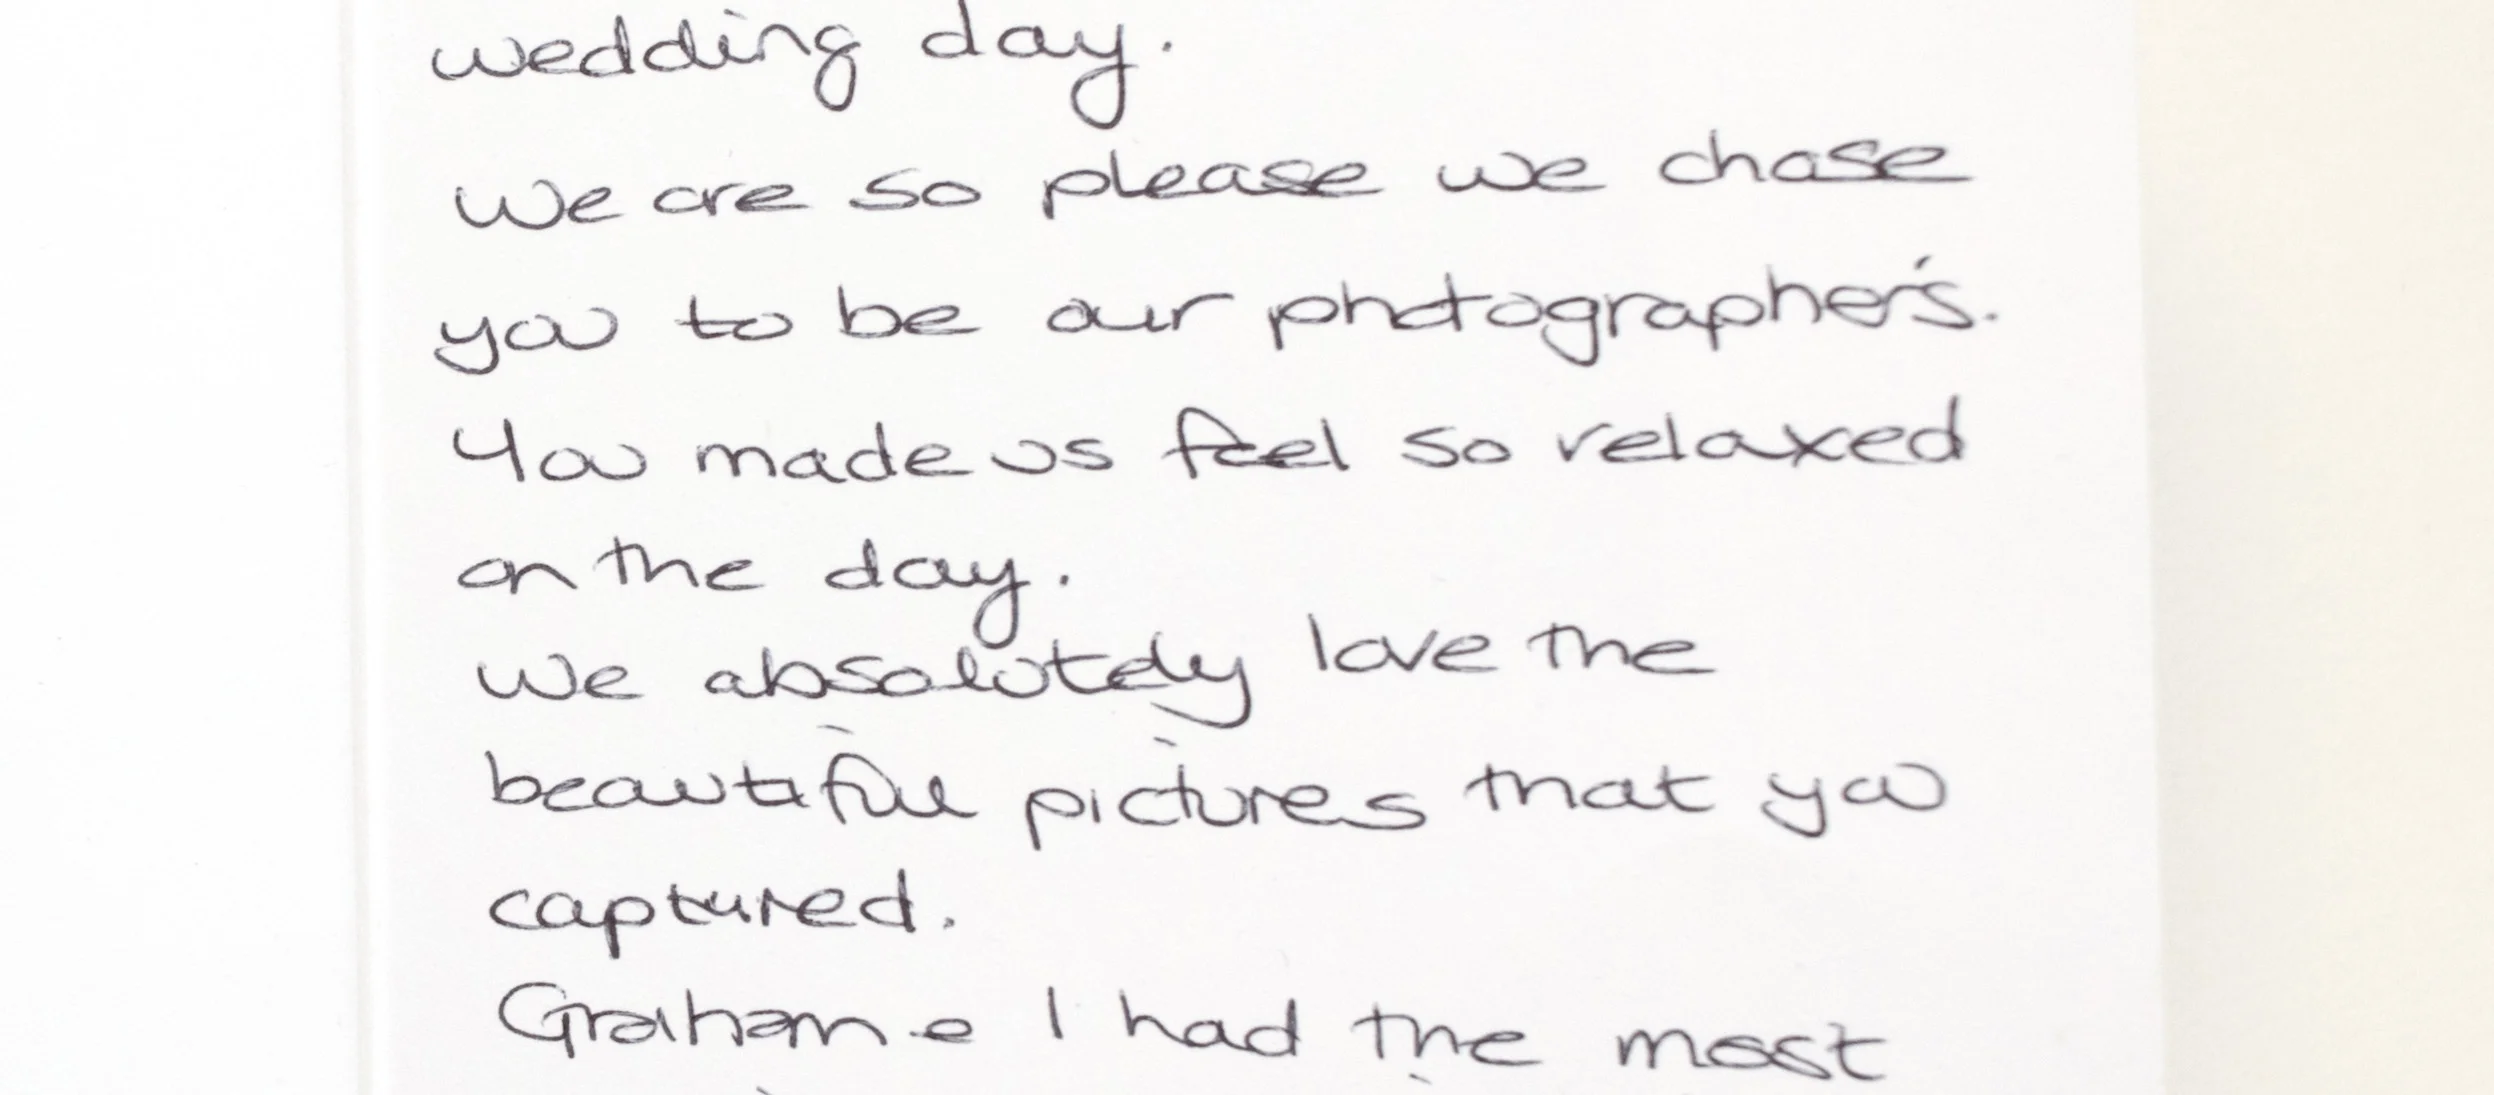 wedding day.
We are so please we chose
you to be our photographer's.
You made us feel so relaxed
on the day.
We absolutely love the
beautiful pictures that you
captured.
Graham & I had the most